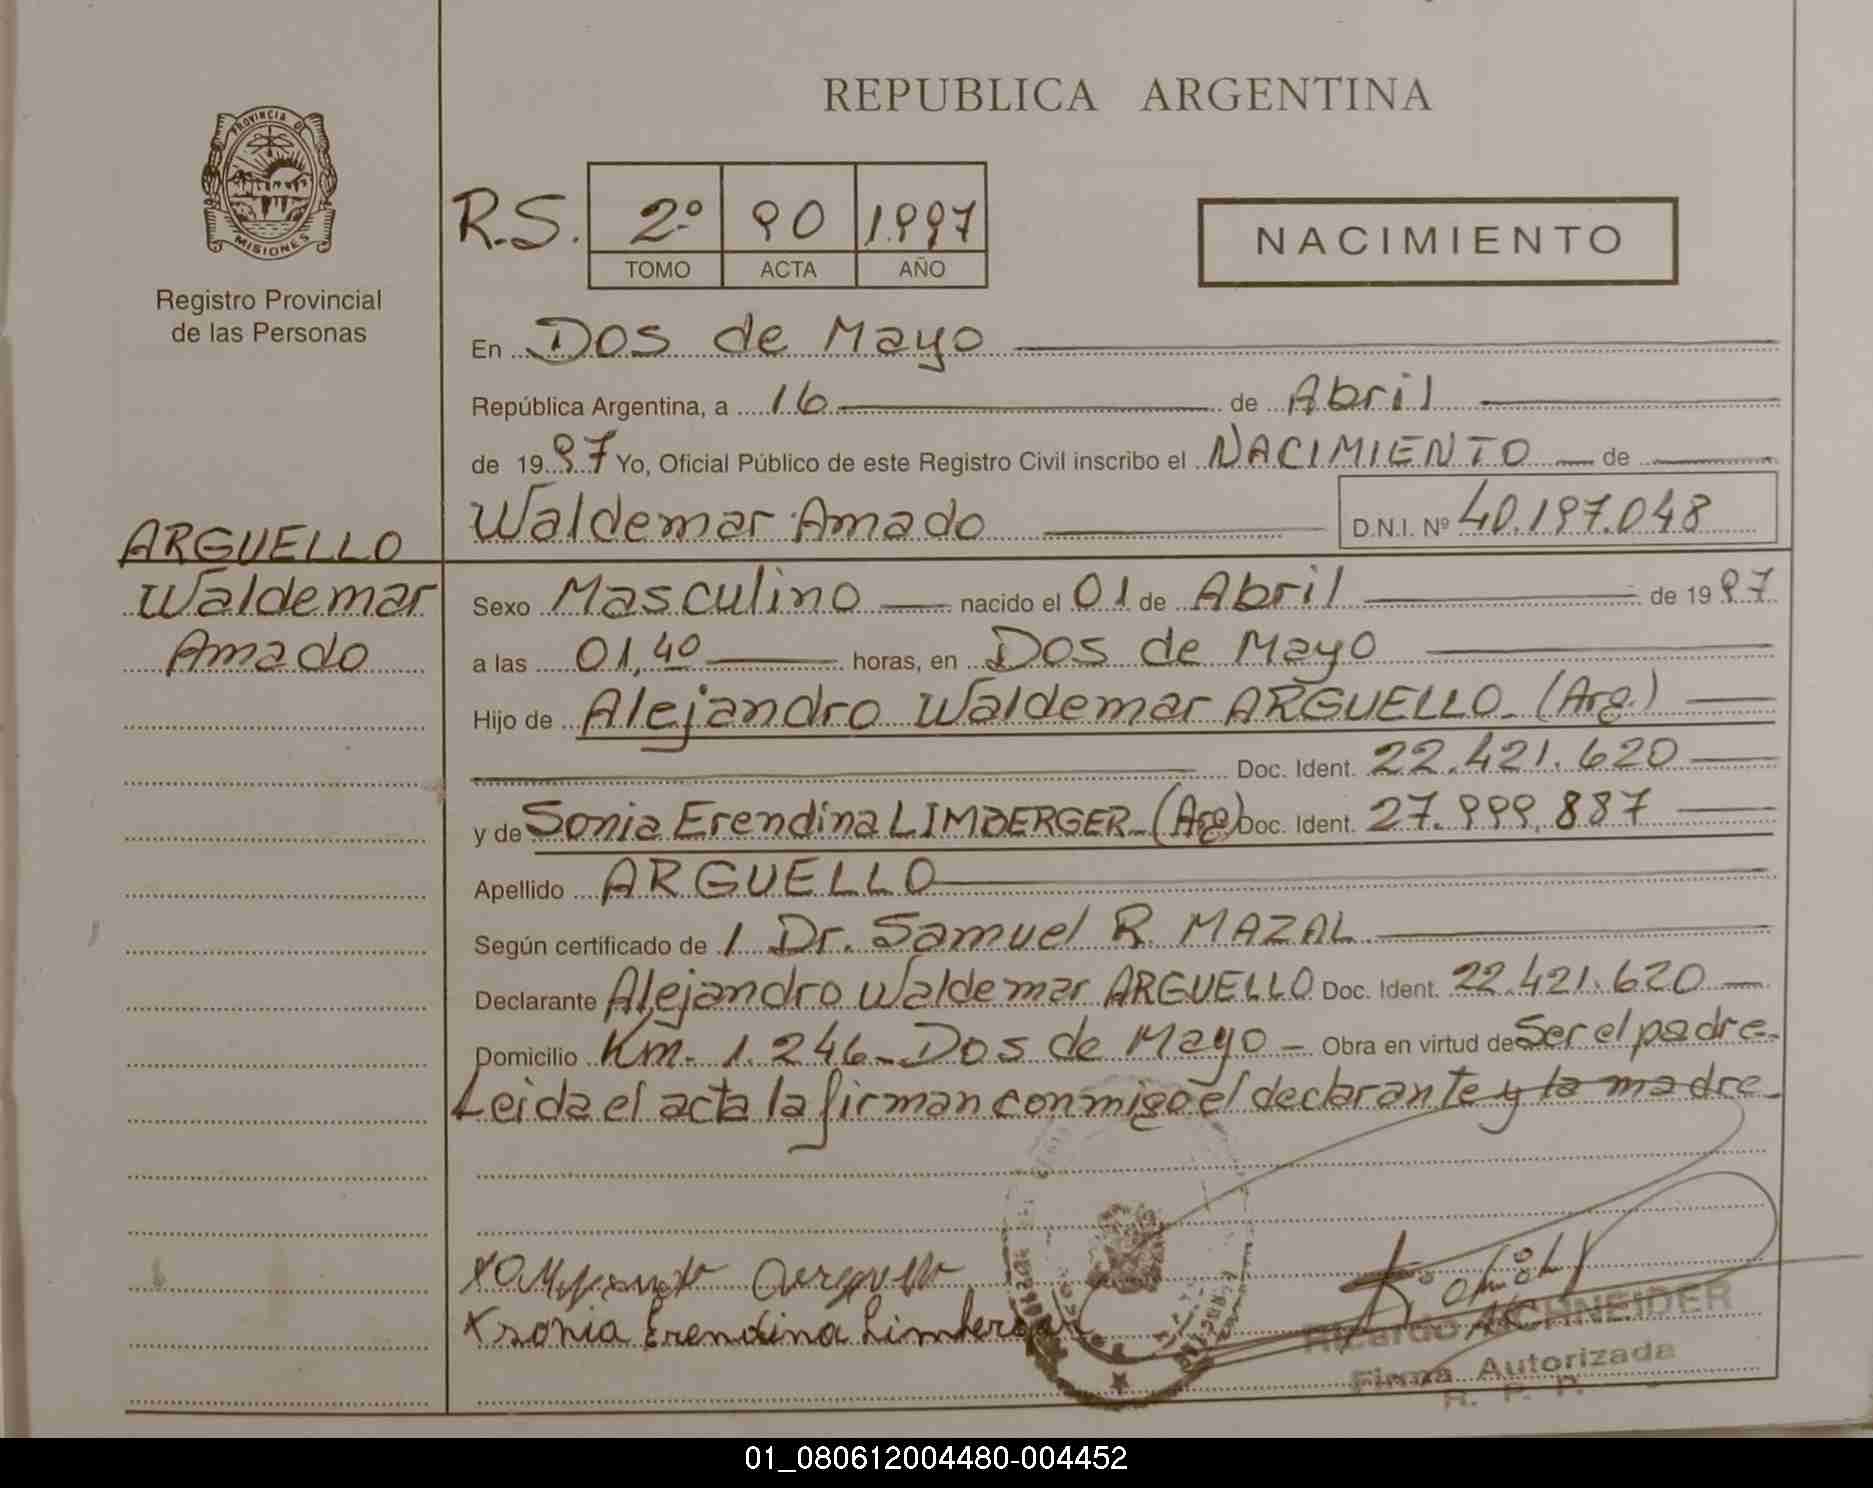 REPUBLICA ARGENTINA
PROVINCIA DE
MISIONES
Registro Provincial
de las Personas
R.S. 2º 90 1.997
TOMO ACTA AÑO
NACIMIENTO
En Dos de Mayo
República Argentina, a 16 de Abril
de 1997 Yo, Oficial Público de este Registro Civil inscribo el NACIMIENTO de
Waldemar Amado D.N.I. Nº 40.197.048
ARGUELLO
Waldemar
Amado
Sexo Masculino nacido el 01 de Abril de 1997
a las 01,40 horas, en Dos de Mayo
Hijo de Alejandro Waldemar ARGUELLO (Arg.)
Doc. Ident. 22.421.620
y de Sonia Erendina LIMBERGER (Arg) Doc. Ident. 27.999.887
Apellido ARGUELLO
Según certificado de 1 Dr. Samuel R. MAZAL
Declarante Alejandro Waldemar ARGUELLO Doc. Ident. 22.421.620
Domicilio Km. 1.246 Dos de Mayo Obra en virtud de Ser el padre
Leida el acta la firman conmigo el declarante y la madre
Arguello
Sonia Erendina Limberger
Ricardo SCHNEIDER
Firma Autorizada
R. P. P.
01_080612004480-004452